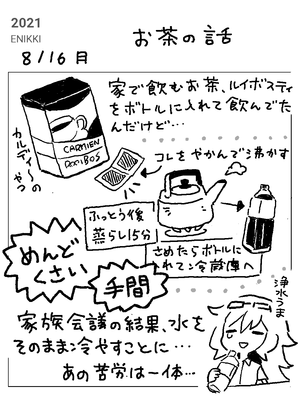 2021
ENIKKI
お茶の話
8/16月
家で飲むお茶、ルイボスティ
をボトルに入れて飲んでた
んだけど…
CARMIEN
ROOIBOS
カルディ〜の
やつ
コレをやかんで沸かす
ふっとう後
蒸らし15分
さめたらボトルに
入れて冷蔵庫へ
めんど
くさい
手間
浄水うま
家族会議の結果、水を
そのまま冷やすことに…
あの苦労は一体…